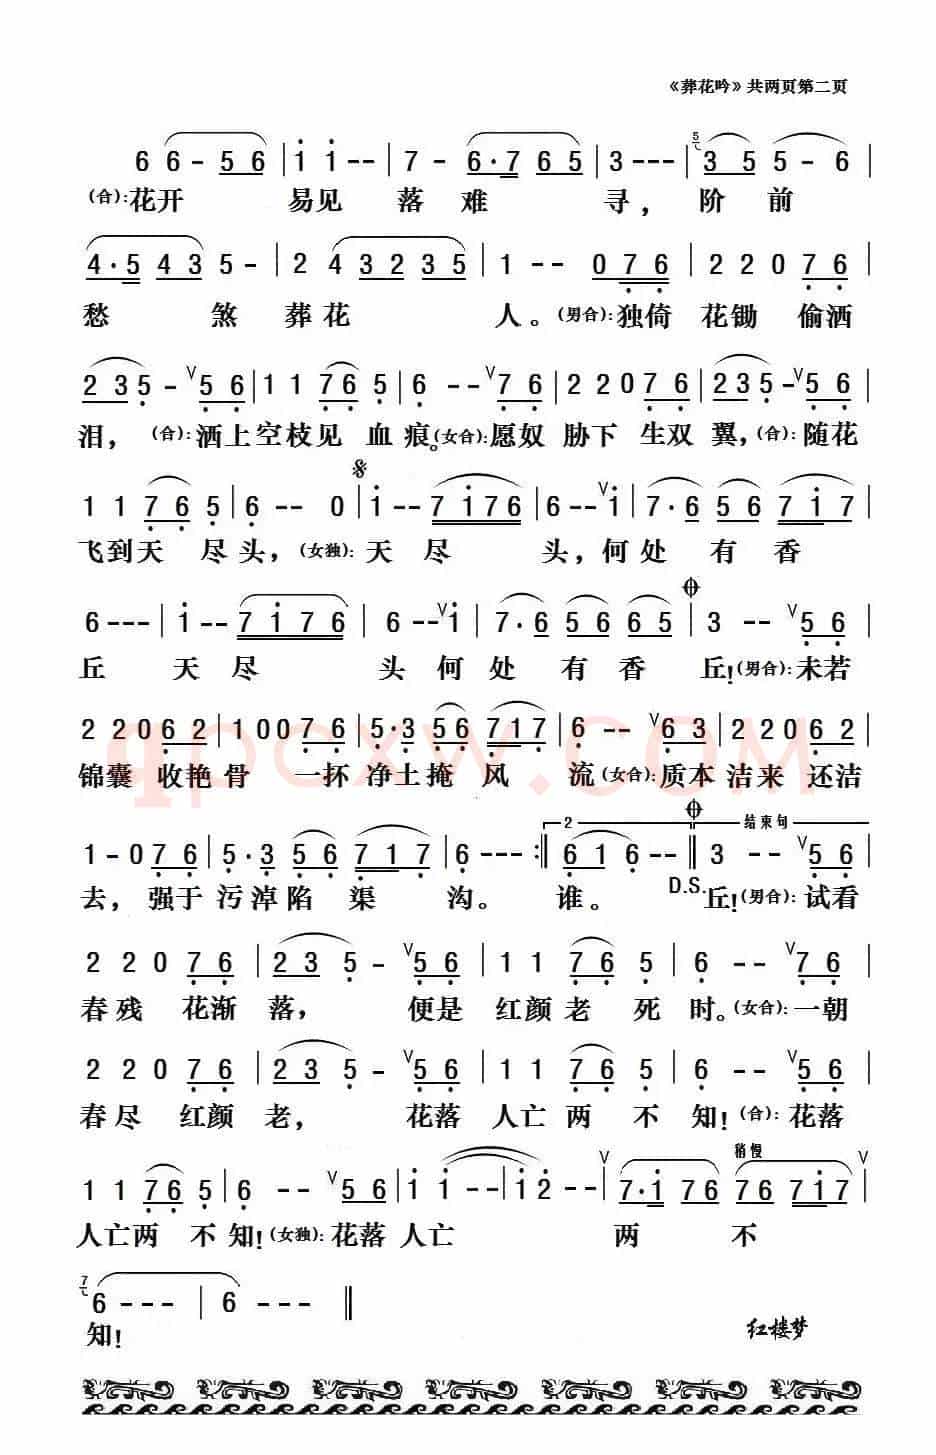 《葬花吟》共两页第二页
6 6 - 5 6 | 1 1 - - | 7 - 6·7 6 5 | 3 - - - | 5 3 5 5 - 6 |
(合):花开 易见 落 难 寻, 阶 前
4·5 4 3 5 - | 2 4 3 2 3 5 | 1 - - 0 7 6 | 2 2 0 7 6 |
愁 煞 葬 花 人。(男合):独倚 花锄 偷洒
2 3 5 - ∨5 6 | 1 1 7 6 5 | 6 - - ∨7 6 | 2 2 0 7 6 | 2 3 5 - ∨5 6 |
泪, (合):洒上空枝见 血 痕。(女合):愿奴 胁下 生双 翼,(合):随花
1 1 7 6 5 | 6 - - 0 | 𝄋 1 - - 7 1 7 6 | 6 - - ∨1 | 7·6 5 6 7 1 7 |
飞到天 尽 头,(女独):天 尽 头,何 处 有 香
6 - - - | 1 - - 7 1 7 6 | 6 - - ∨1 | 7·6 5 6 6 5 | 𝄌 3 - - ∨5 6 |
丘 天 尽 头 何 处 有 香 丘!(男合):未若
2 2 0 6 2 | 1 0 0 7 6 | 5·3 5 6 7 1 7 | 6 - - ∨6 3 | 2 2 0 6 2 |
锦囊 收艳骨 一抔 净土掩 风 流(女合):质本 洁来 还洁
qpcxw.com
1 - 0 7 6 | 5·3 5 6 7 1 7 | 6 - - - :‖ 2 6 1 6 - - ‖ 𝄌 结束句 3 - - ∨5 6 |
去, 强于 污淖 陷 渠 沟。 谁。 D.S. 丘!(男合):试看
2 2 0 7 6 | 2 3 5 - ∨5 6 | 1 1 7 6 5 | 6 - - ∨7 6 |
春残 花渐 落, 便是 红颜 老 死 时。(女合):一朝
2 2 0 7 6 | 2 3 5 - ∨5 6 | 1 1 7 6 5 | 6 - - ∨5 6 |
春尽 红颜 老, 花落 人亡 两 不 知!(合):花落
稍慢
1 1 7 6 5 | 6 - - ∨5 6 | 1 1 - - | 1 2 - - ∨| 7·1 7 6 7 6 7 1 7 ∨|
人亡两 不 知!(女独):花落 人亡 两 不
7 6 - - - | 6 - - - ‖
知!
红楼梦